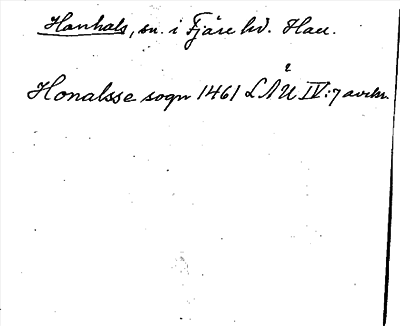 Hanhals, sn. i Fjäre hd. Hall.
Honalsse sogn 1461 LÅU IV:7 avskr.